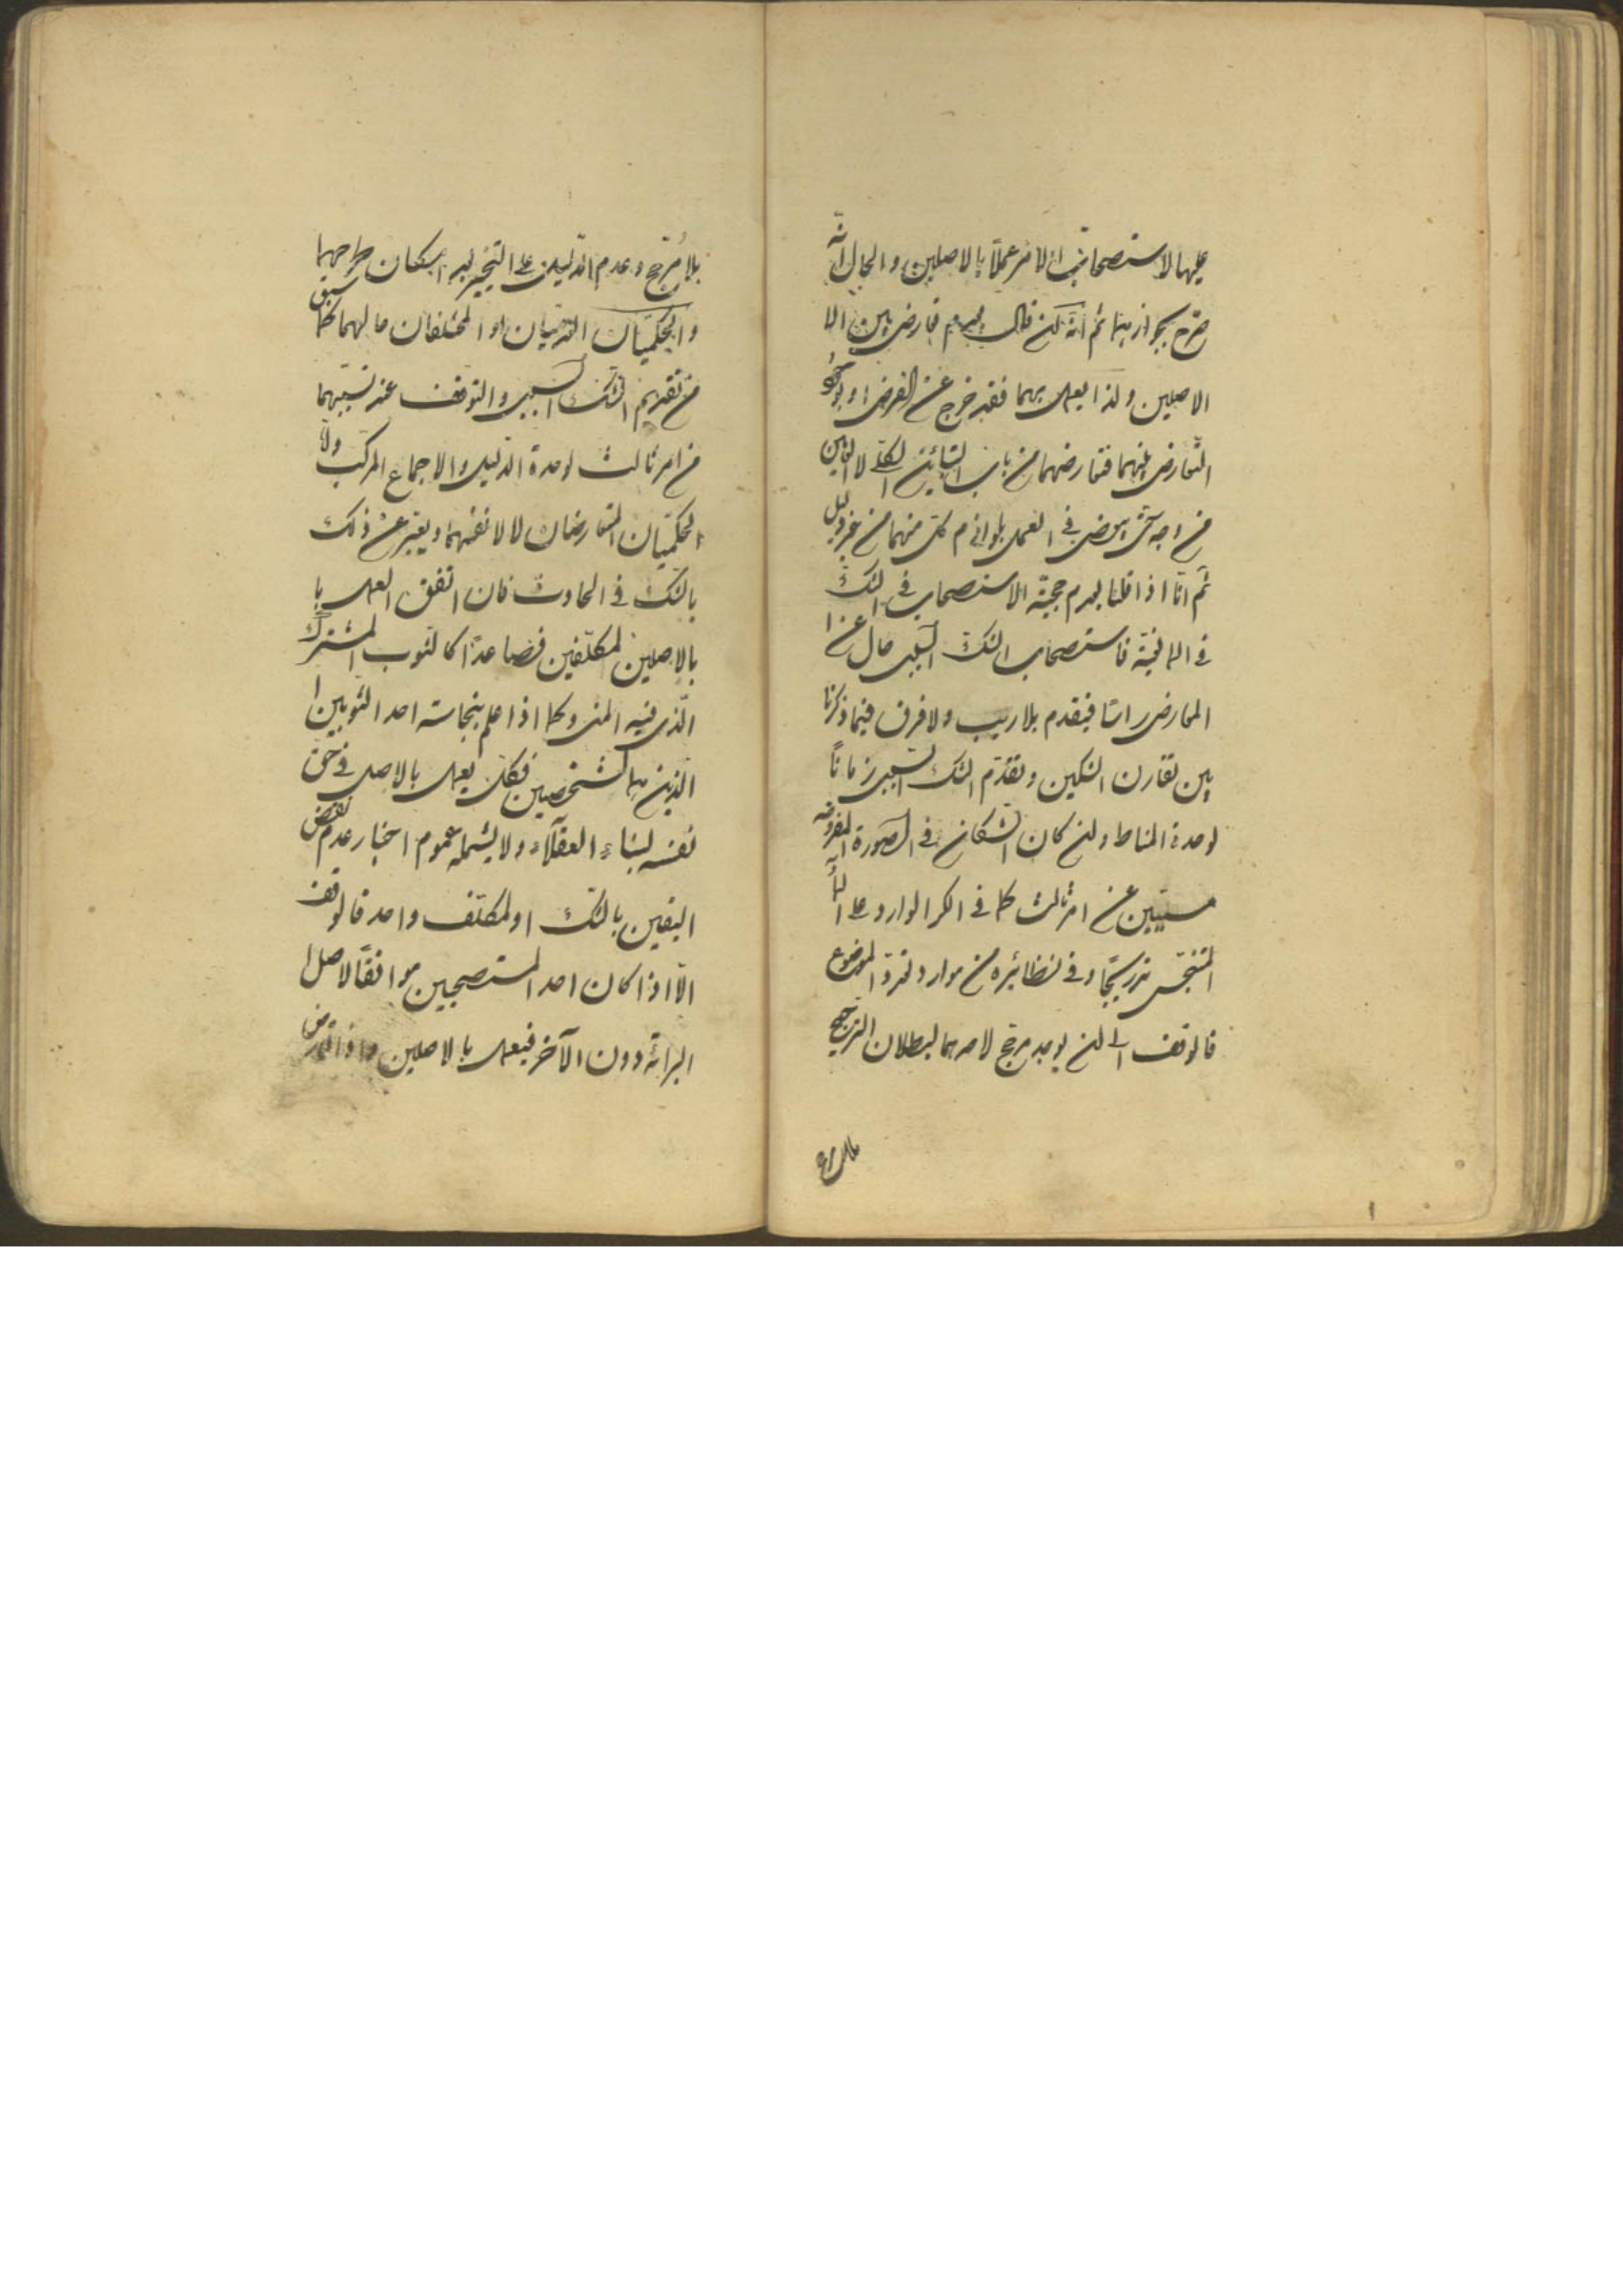 عليها لاستصحاب الامر عملا بالاصلين والحال انه
صرح بجوازهما ثم انه لمن قال بعدم تعارض بين الا
الاصلين ولذا يعمل بهما فقد خرج عن الفرض او بوجود
التعارض بينهما فتعارضهما من باب التباين الكلي لا التباين
من وجه حتى يفوض في العمل بلوازم كل منهما من غير دليل
ثم انا اذا قلنا بعدم حجية الاستصحاب في الشك
في فاستصحاب الشك السببي حال عن
المعارض راسا فيقدم بلا ريب ولا فرق فيما ذكرنا
بين تقارن الشكين وتقدم الشك السببي زمانا
لوحدة المناط ولن كان الشكان في الصورة المفروضة
مسببين عن امر ثالث كما في الكر الوارد على الماء
المتنجس تدريجا وفي نظائره من موارد الموضوع
فالوقف الا لن يوجد مرجح لاحدهما لبطلان الترجيح
بلا مرجح وعدم الدليل على التخيير فيه طرحهما
والحكميان او المختلفان حالهما كما سبق
من تقديم الشك السببي والتوقف عند تسببهما
من امر ثالث لوحدة الدليل والاجماع المركب ولا
الحكميان المتعارضان لا لانفسهما ويعبر عن ذلك
بالشك في الحادث فان اتفق العمل با
بالاصلين لمكلفين فصاعدا كالثوب المشترك
الذي فيه المني وكما اذا علم بنجاسة احد الثوبين ا
الذين هما لشخصين فكل يعمل بالاصل في حق
نفسه لبناء العقلاء ولا يشمله عموم اخبار عدم نقض
اليقين بالشك او لمكلف واحد فالوقف
الا اذا كان احد المستصحبين موافقا لاصل ا
البرائة دون الآخر فيعمل بالاصلين واذا تعارض